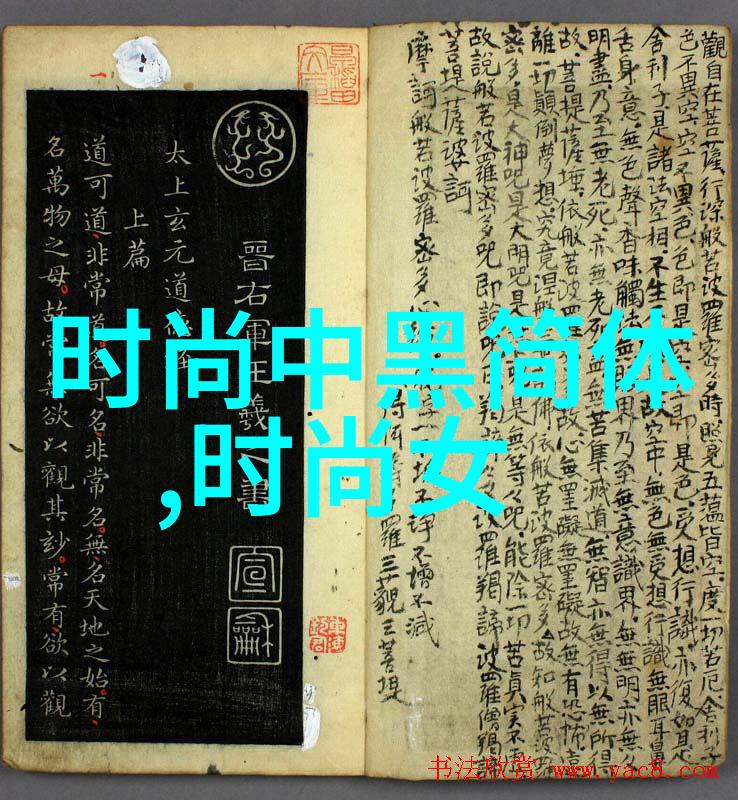 時尚中黑简体
,时尚女
觀自在菩薩行深般若波羅密多時照見五蘊皆空度一切苦厄舍利子
色不異空空不異色色即是即是色受想行識亦復如是
舍利子是諸法空相不生故空中無色無受想行識無眼耳鼻
舌身意無色聲香味觸法無眼界乃至無意識界無無明亦無
明盡乃至無老死亦無老死無苦集滅道無智亦無得以無所得
故菩提薩埵依般若波羅故心無罣礙無罣礙故無有恐怖遠
離一切顛倒夢想究竟涅槃佛依般若波羅密多故知般若波
密多是大神咒是大明咒是是無等々咒能除一切苦真實不
故說般若波羅密多咒即說咒曰羯諦波羅羯諦波羅僧羯諦
菩提薩婆訶
摩訶般若波羅密多心
不淨不增不減
羅三藐三菩提
晉右軍王羲之書
宣和
太上玄元道德經
上篇
道可道非常道名可名非常名無名天地之始有
名萬物之母故常無欲以觀其妙常有欲以觀
书法欣赏 www.yac8.com